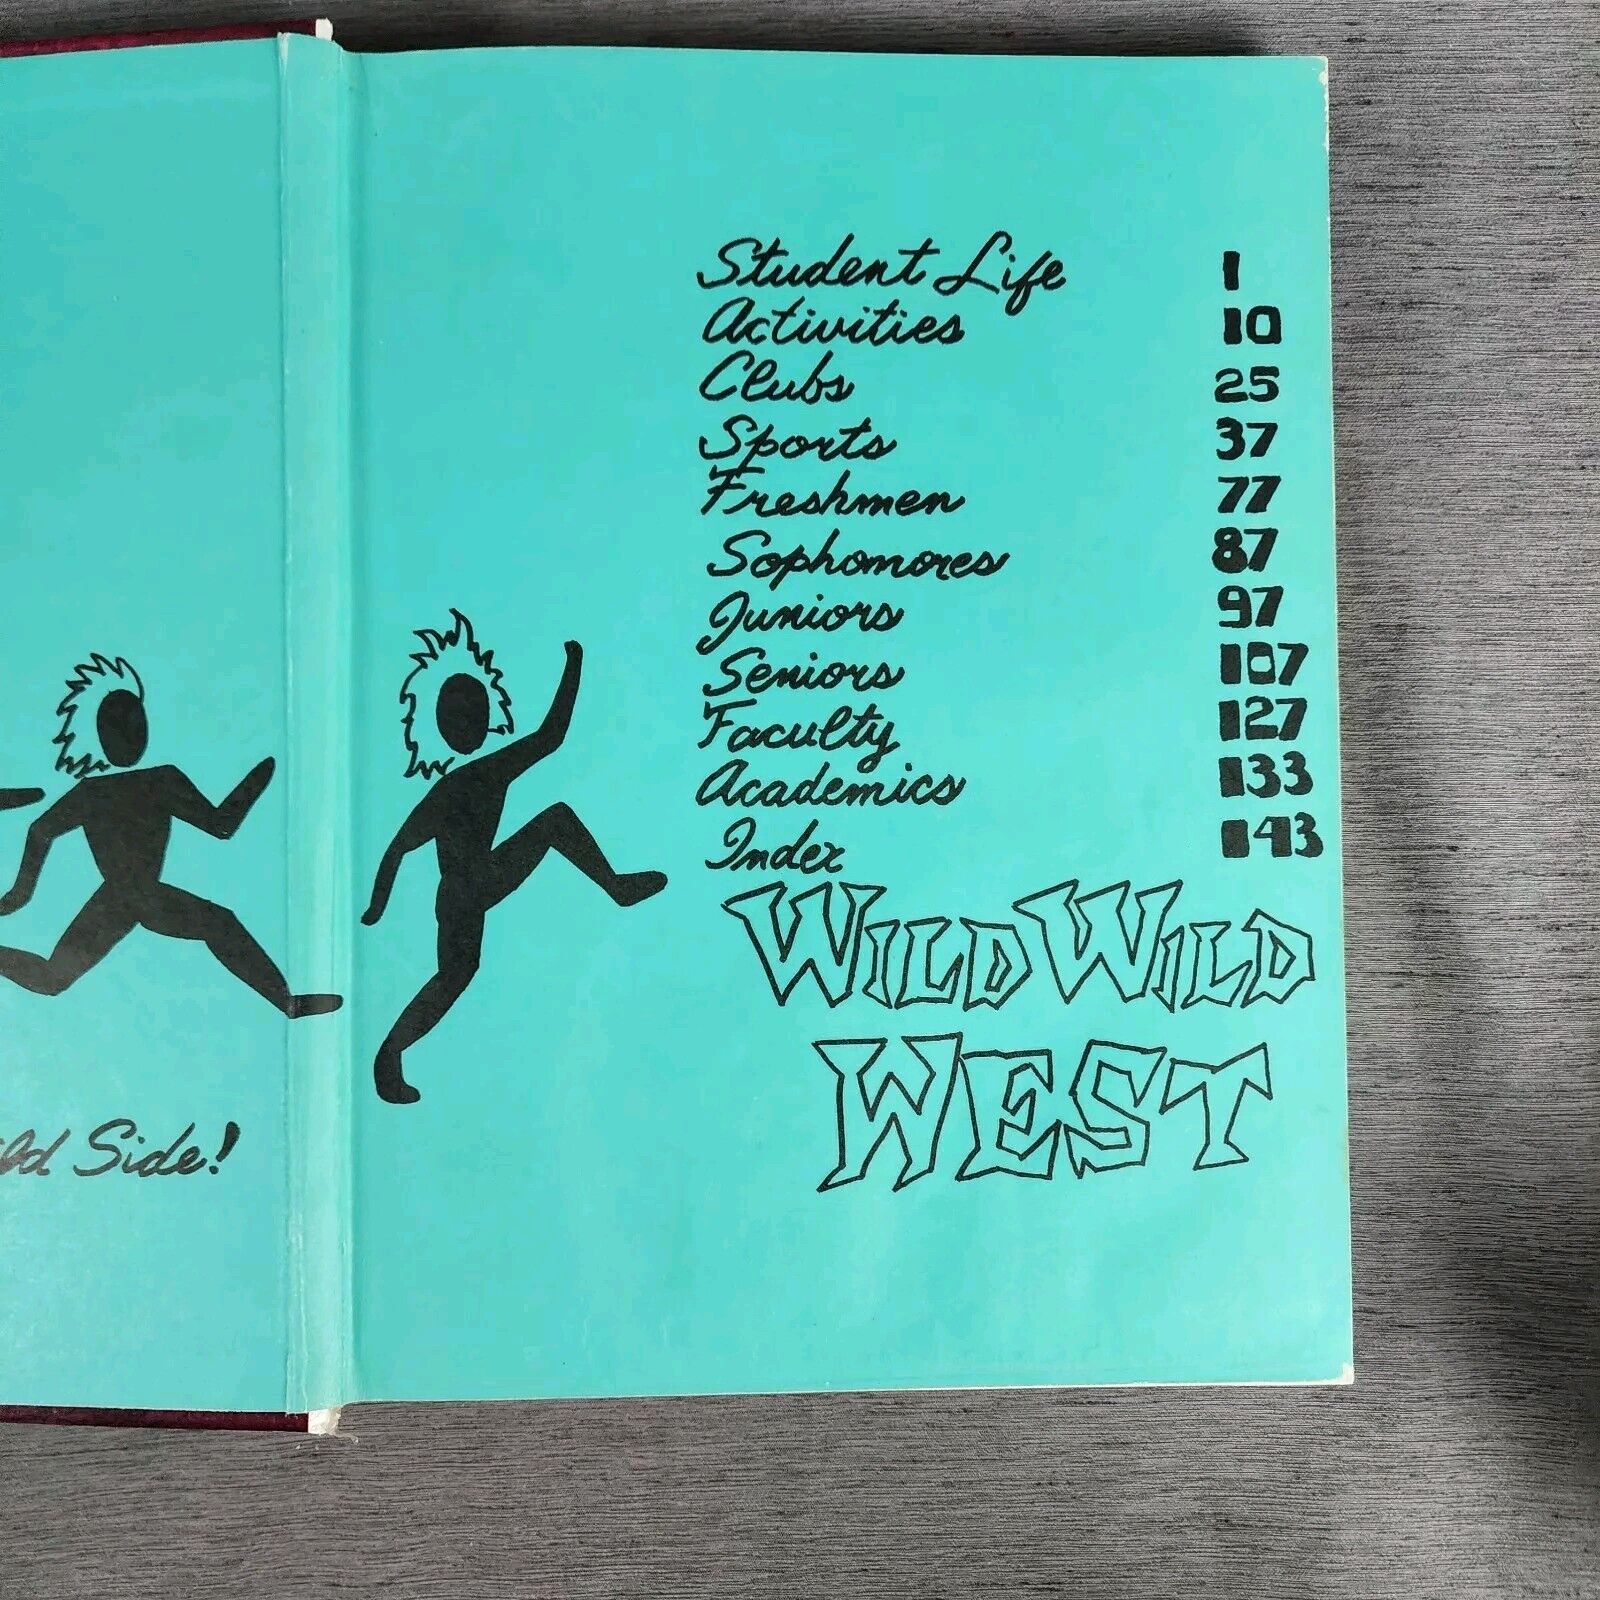 Student Life 1
Activities 10
Clubs 25
Sports 37
Freshmen 77
Sophomores 87
Juniors 97
Seniors 107
Faculty 127
Academics 133
Index 143
WILD WILD
WEST
Side!